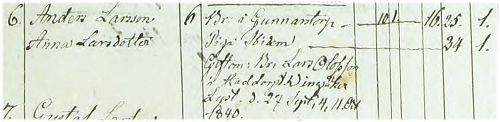 6. Anders Larsson 6 Br: i Gunnantorp 101 16. 25 1.
Anna Larsdotter Piga Ibidem 24 1.
Giftom: Br: Lars Olofsson
i Haddorp Wingåker
Lyst. d. 27 Sept, 4, 11 Oct
7. 1840.